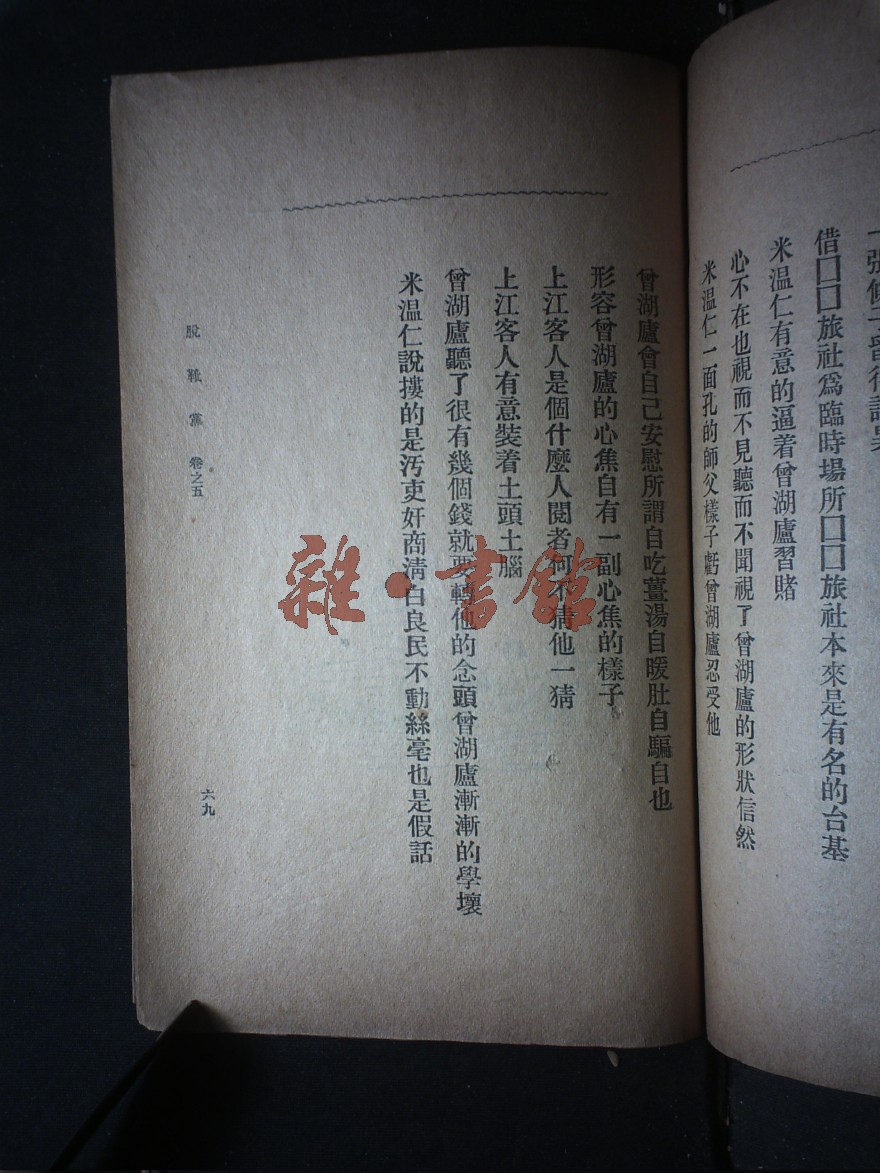 借囗囗旅社爲臨時場所囗囗旅社本來是有名的台基
米温仁有意的逼着曾湖廬習賭
心不在也視而不見聽而不聞視了曾湖廬的形狀信然
米温仁一面孔的師父樣子虧曾湖廬忍受他
曾湖廬會自己安慰所謂自吃薑湯自暖肚自騙自也
形容曾湖廬的心焦自有一副心焦的樣子
上江客人是個什麼人閱者何不猜他一猜
上江客人有意裝着土頭土腦
曾湖廬聽了很有幾個錢就要轉他的念頭曾湖廬漸漸的學壞
米温仁說摟的是汚吏奸商淸白良民不動絲亳也是假話
脫靴黨 卷之五
六九
雜·書館